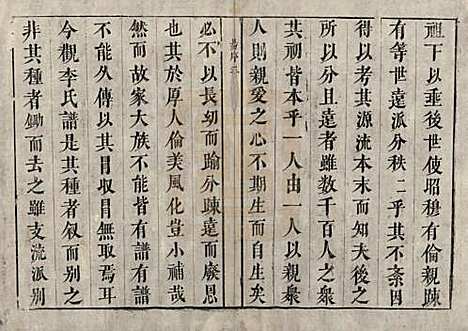 祖下以垂後世使昭穆有倫親疎
有等世遠派分秩二乎其不紊因
得以考其源流本末而知夫後之
所以分且遠者雖数千百人之衆
其初皆本乎一人由一人以親衆
人則親愛之心不期生而自生矣
必不以長幼而踰分疎遠而廢恩
其於厚人倫美風化豈小補哉
然而故家大族不能皆有譜有譜
不能久傳以其目取目無取焉耳
今觀李氏譜是其種者叙而别之
非其種者鋤而去之雖支流派别